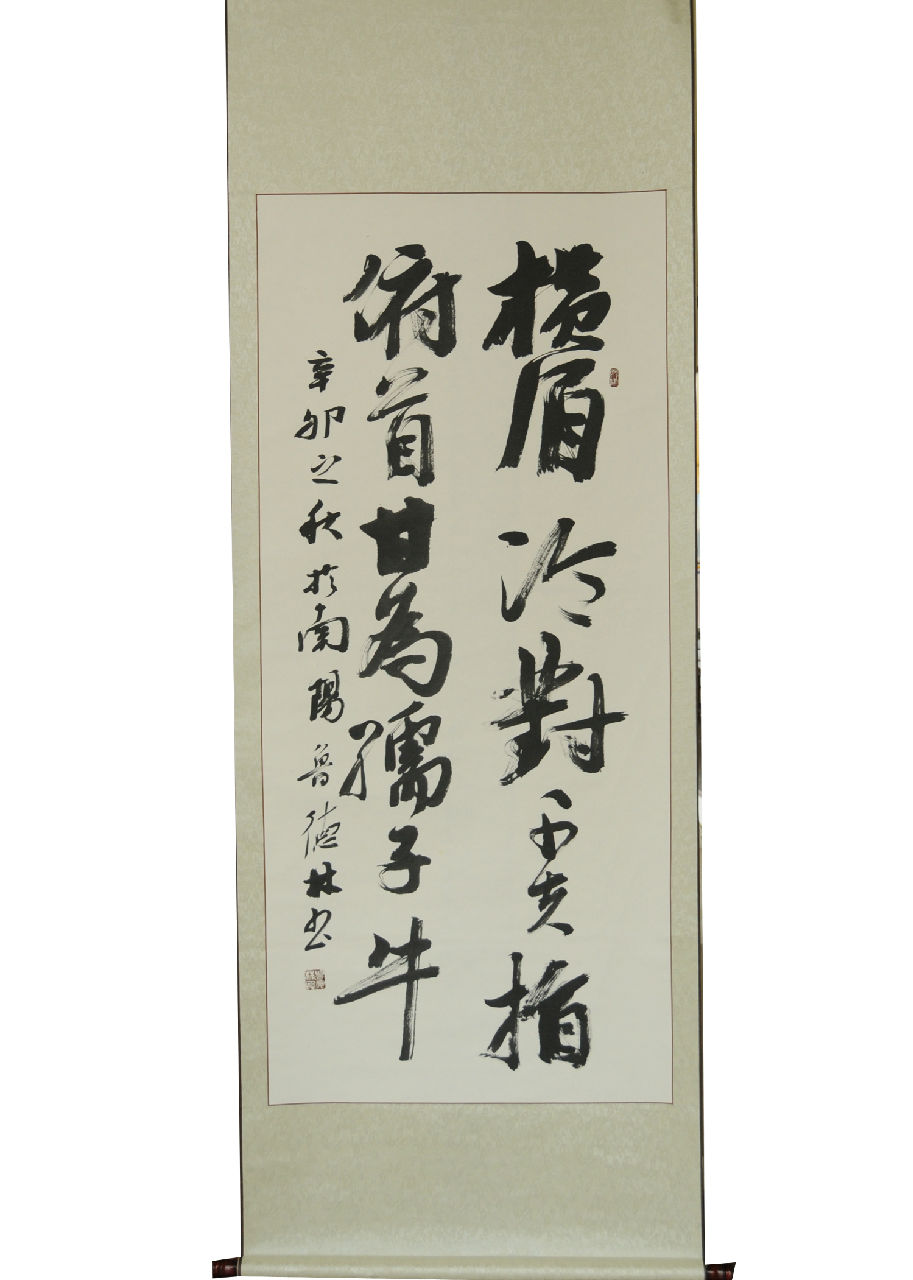 横眉冷對千夫指
俯首甘為孺子牛
辛卯之秋於南陽魯德林书